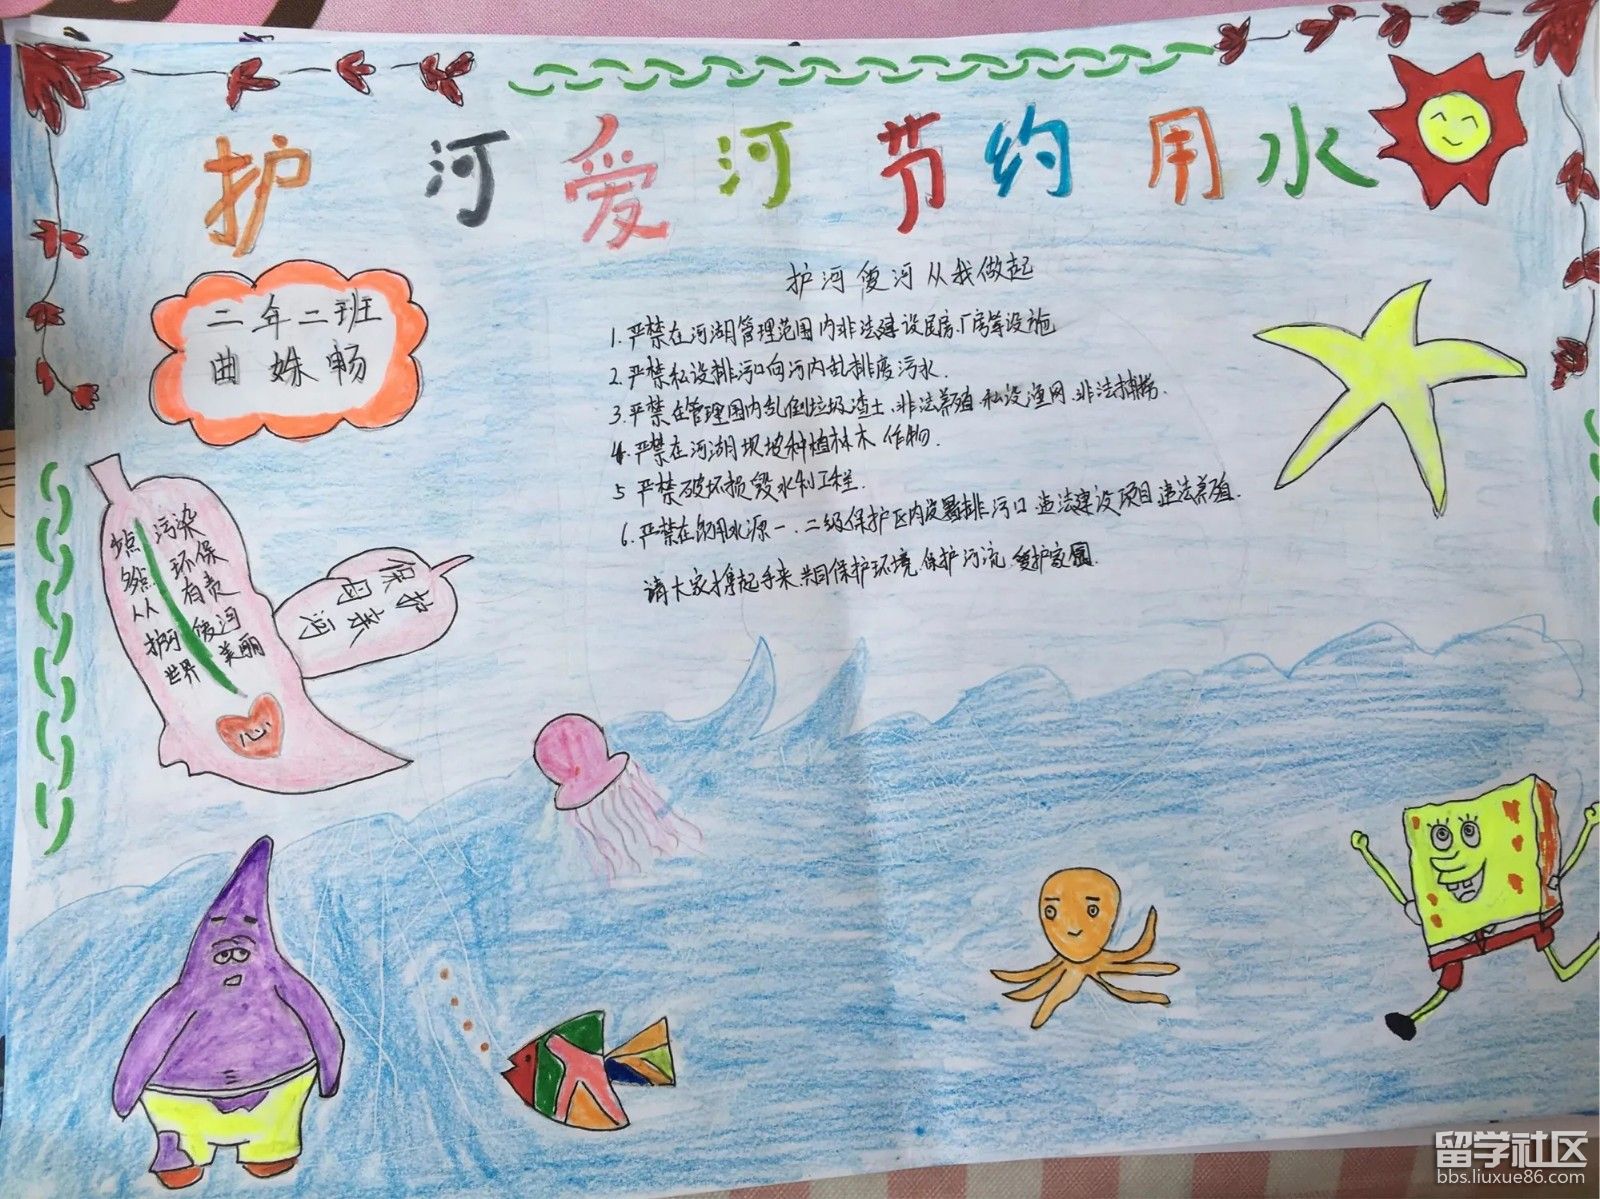 护河爱河节约用水
二年二班
曲姝畅
护河爱河从我做起
1.严禁在河湖管理范围内非法建设居房厂房等设施
2.严禁私设排污口向河内乱排废污水.
3.严禁在管理围内乱倒垃圾渣土、非法养殖、私设渔网、非法捕捞.
4.严禁在河湖坝坡种植林木作物.
5 严禁破坏损毁水利工程.
6.严禁在饮用水源一、二级保护区内设置排污口 违法建设项目 违法养殖.
请大家撑起手来.共同保护环境.保护河流.爱护家园.
少点污染
多点环保
人人有责
护河爱河
世界美丽
心
保护
母
亲河
留学社区
bbs.liuxue86.com